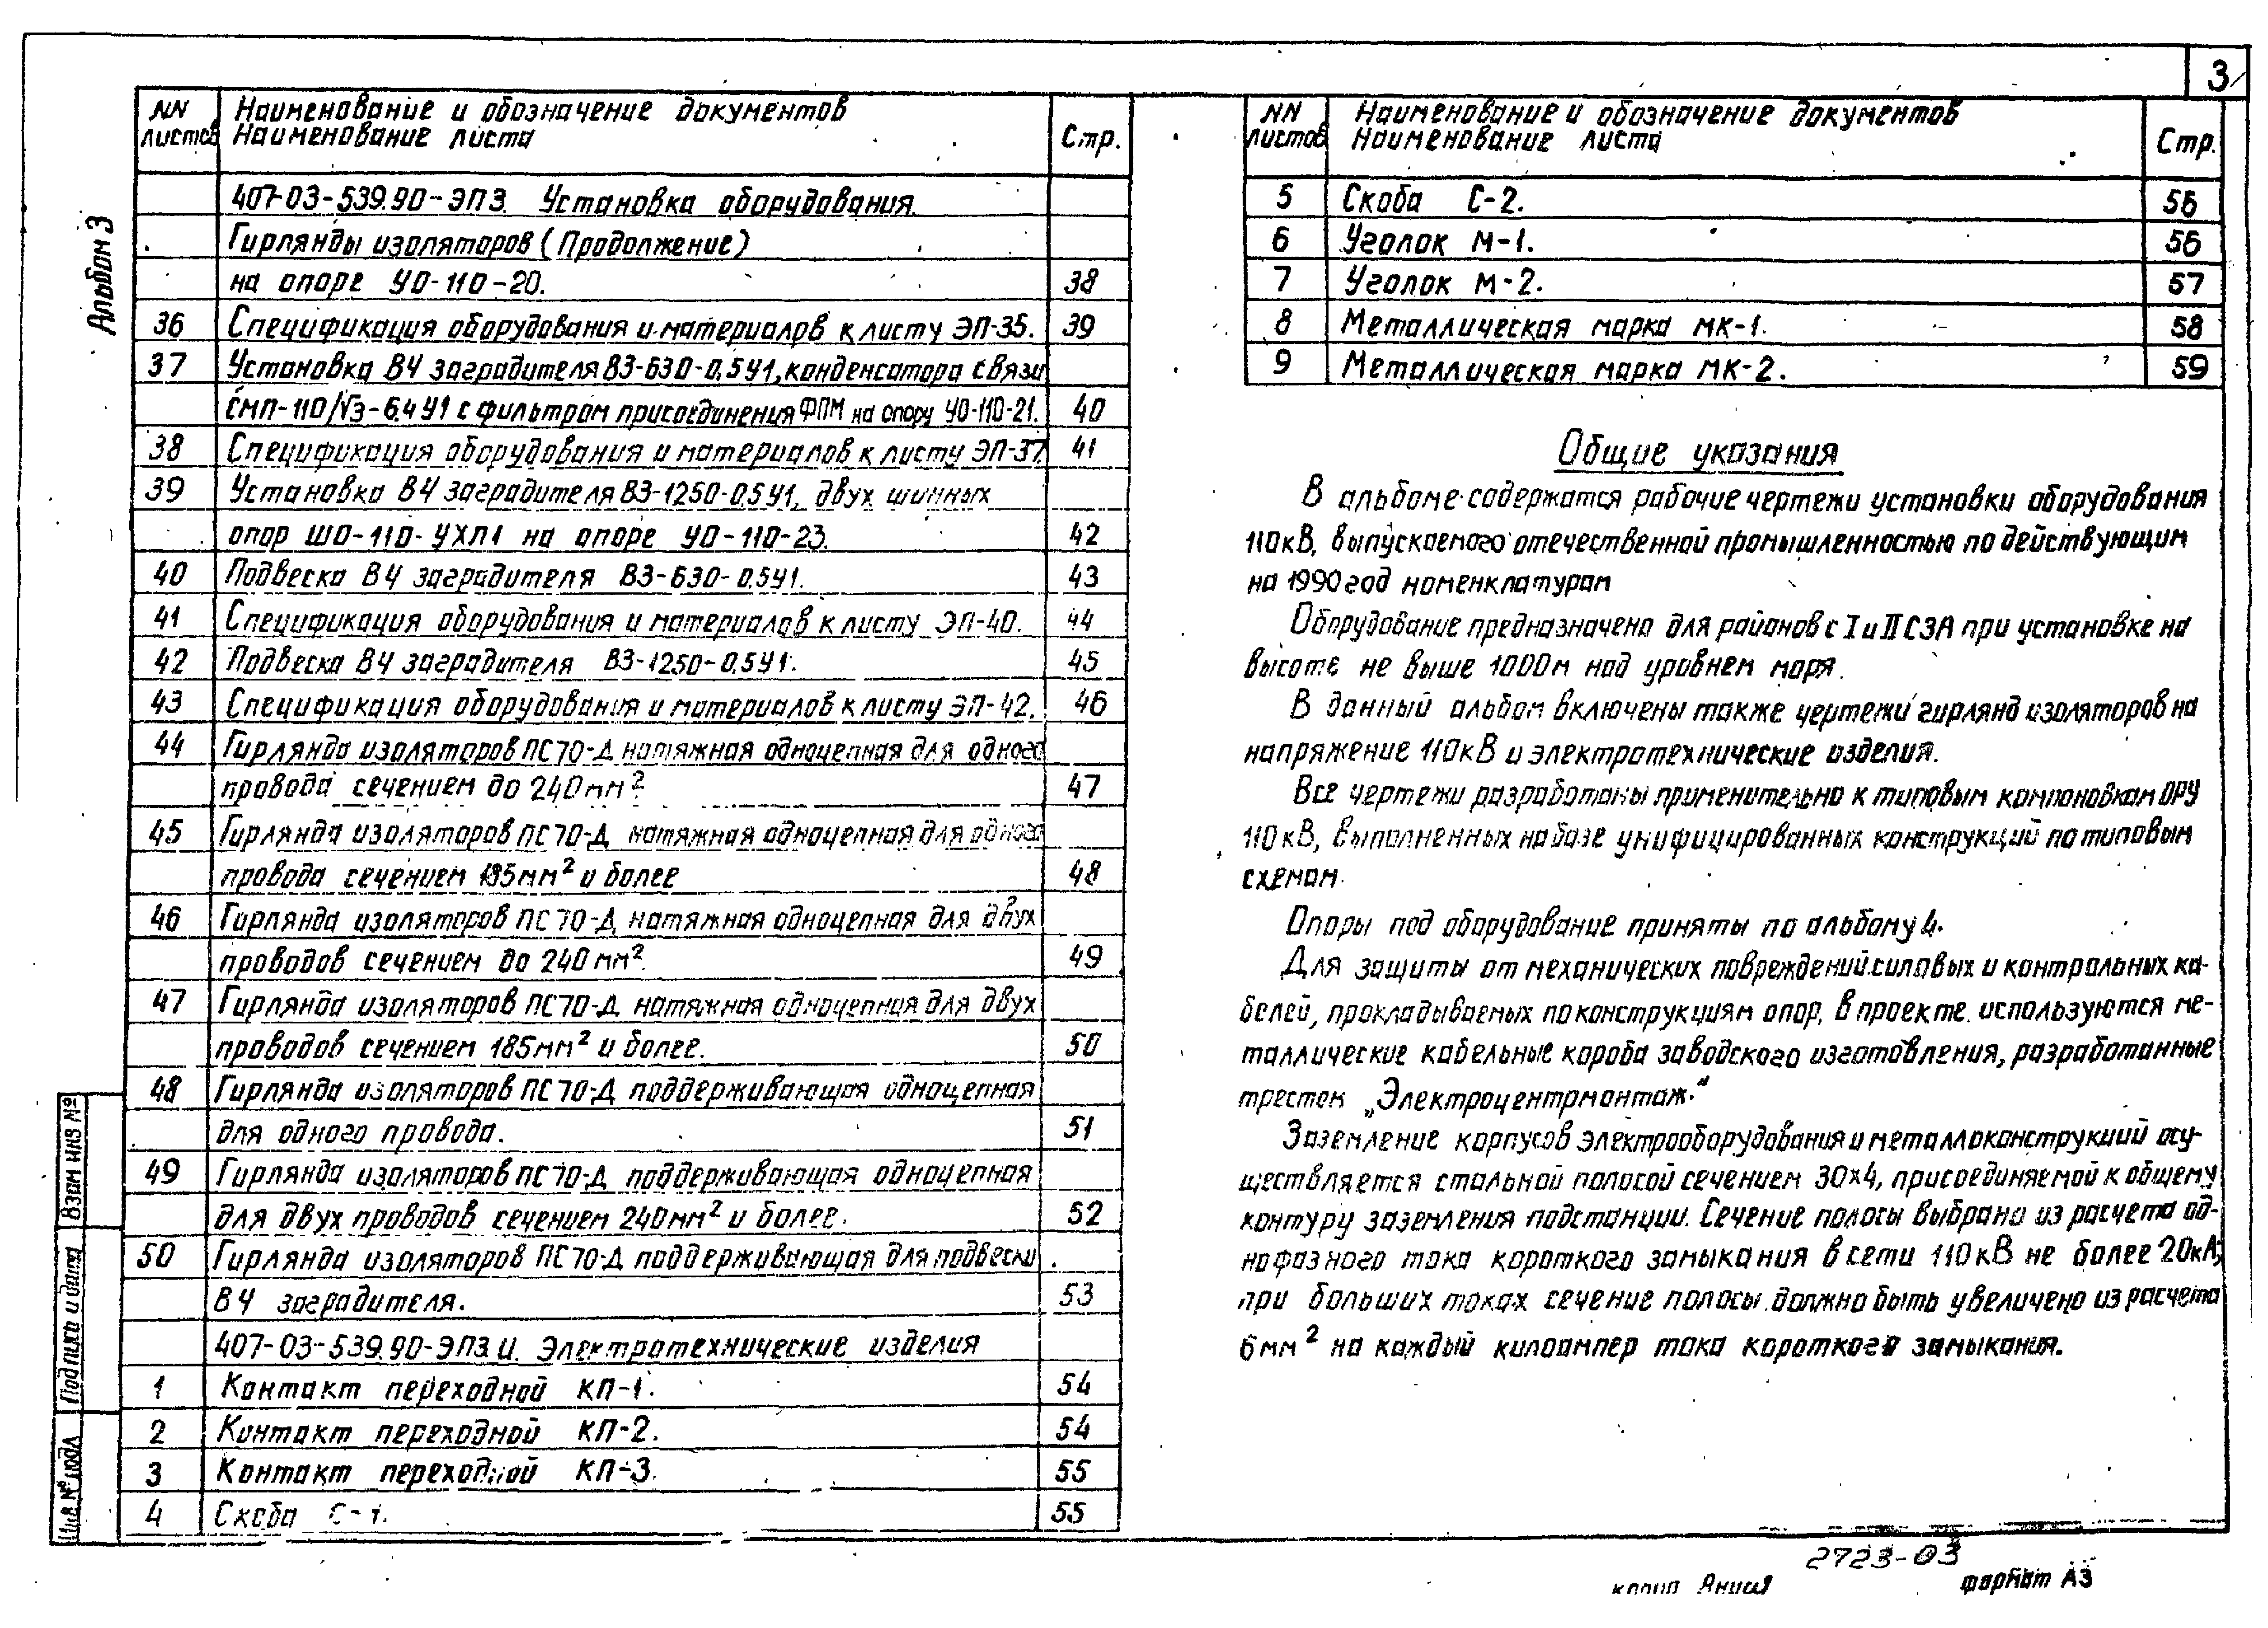 3
Альбом 3
NN Наименование и обозначение документов
листов Наименование листа Стр.
407-03-539.90-ЭП3. Установка оборудования.
Гирлянды изоляторов (Продолжение)
на опоре УО-110-20. 38
36 Спецификация оборудования и материалов к листу ЭП-35. 39
37 Установка ВЧ заградителя ВЗ-630-0,5У1, конденсатора связи
СМП-110/√3-6,4У1 с фильтром присоединения ФПМ на опору УО-110-21. 40
38 Спецификация оборудования и материалов к листу ЭП-37 41
39 Установка ВЧ заградителя ВЗ-1250-0,5У1, двух шинных
опор ШО-110-УХЛ1 на опоре УО-110-23. 42
40 Подвеска ВЧ заградителя ВЗ-630-0,5У1. 43
41 Спецификация оборудования и материалов к листу ЭП-40. 44
42 Подвеска ВЧ заградителя ВЗ-1250-0,5У1. 45
43 Спецификация оборудования и материалов к листу ЭП-42. 46
44 Гирлянда изоляторов ПС70-Д натяжная одноцепная для одного
провода сечением до 240мм² 47
45 Гирлянда изоляторов ПС70-Д натяжная одноцепная для одного
провода сечением 185мм² и более 48
46 Гирлянда изоляторов ПС70-Д натяжная одноцепная для двух
проводов сечением до 240мм². 49
47 Гирлянда изоляторов ПС70-Д натяжная одноцепная для двух
проводов сечением 185мм² и более. 50
48 Гирлянда изоляторов ПС70-Д поддерживающая одноцепная
для одного провода. 51
49 Гирлянда изоляторов ПС70-Д поддерживающая одноцепная
для двух проводов сечением 240мм² и более. 52
50 Гирлянда изоляторов ПС70-Д поддерживающая для подвески
ВЧ заградителя. 53
407-03-539.90-ЭП3.И. Электротехнические изделия
1 Контакт переходной КП-1. 54
2 Контакт переходной КП-2. 54
3 Контакт переходной КП-3. 55
4 Скоба С-1. 55
Взам инв №
Подпись и дата
Инв № подл
NN Наименование и обозначение документов
листов Наименование листа Стр.
5 Скоба С-2. 56
6 Уголок М-1. 56
7 Уголок М-2. 57
8 Металлическая марка МК-1. 58
9 Металлическая марка МК-2. 59
Общие указания
В альбоме содержатся рабочие чертежи установки оборудования
110кВ, выпускаемого отечественной промышленностью по действующим
на 1990 год номенклатурам
Оборудование предназначено для районов с I и II СЗА при установке на
высоте не выше 1000м над уровнем моря.
В данный альбом включены также чертежи гирлянд изоляторов на
напряжение 110кВ и электротехнические изделия.
Все чертежи разработаны применительно к типовым компоновкам ОРУ
110кВ, выполненных на базе унифицированных конструкций по типовым
схемам.
Опоры под оборудование приняты по альбому 4.
Для защиты от механических повреждений силовых и контрольных ка-
белей, прокладываемых по конструкциям опор, в проекте используются ме-
таллические кабельные короба заводского изготовления, разработанные
трестом „Электроцентрмонтаж."
Заземление корпусов электрооборудования и металлоконструкций осу-
ществляется стальной полосой сечением 30×4, присоединяемой к общему
контуру заземления подстанции. Сечение полосы выбрано из расчета од-
нофазного тока короткого замыкания в сети 110кВ не более 20кА;
при больших токах сечение полосы должно быть увеличено из расчета
6мм² на каждый килоампер тока короткого замыкания.
2723-03
формат А3